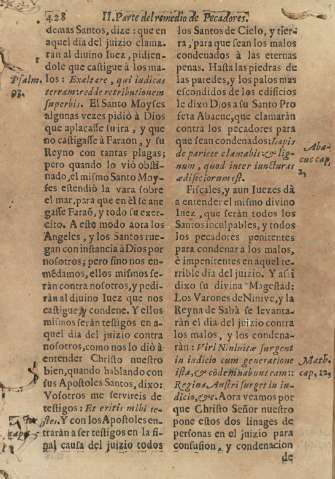 428 II. Parte del remedio de Pecadores.
demas Santos, dize: que en
aquel dia del juizio clama-
ràn al divino Iuez, pidien-
dole que castigue à los ma-
los: Exaltare, qui iudicas
terram: redde retributionem
superbis. El Santo Moyses
algunas vezes pidiò à Dios
que aplacasse su ira, y que
no castigasse à Faraon, y su
Reyno con tantas plagas;
pero quando lo viò obsti-
nado, el mismo Santo Moy-
ses estendiò la vara sobre
el mar, para que en èl se ane-
gasse Faraõ, y todo su exer-
cito. A este modo aora los
Angeles, y los Santos rue-
gan con instancia à Dios por
nosotros; pero sino nos en-
mẽdamos, ellos mismos se-
ràn contra nosotros, y pedi-
ràn al divino Iuez que nos
castigue, y condene. Y ellos
mismos seràn testigos en a-
quel dia del juizio contra
nosotros, como nos lo diò à
entender Christo nuestro
bien, quando hablando con
sus Apostoles Santos, dixo:
Vosotros me servireis de
testigos: Et eritis mihi te-
stes. Y con los Apostoles en-
traràn à ser testigos en la fi-
nal causa del juizio todos
Psalm.
93.
cap.
los Santos de Cielo, y tier-
ra, para que sean los malos
condenados à las eternas
penas. Hasta las piedras de
las paredes, y los palos mas
escondidos de los edificios
le dixo Dios à su Santo Pro
feta Abacuc, que clamaràn
contra los pecadores para
que sean condenados: Lapis
de pariete clamabit: & lig-
num, quod inter iuncturas
ædificiorum est.
Fiscales, y aun Iuezes dà
a entender el mismo divino
Iuez, que seràn todos los
Santos inculpables, y todos
los pecadores penitentes
para condenar à los malos,
è impenitentes en aquel ter-
rible dia del juizio. Y assi
dixo su divina Magestad:
Los Varones de Ninive, y la
Reyna de Sabà se levanta-
ràn el dia del juizio contra
los malos, y los condena-
ràn: Viri Ninivitæ surgent
in iudicio cum generatione
ista, & codemnabunt eam:
Regina Austri surget in iu-
dicio, &c. Aora veamos por
que Christo Señor nuestro
pone estos dos linages de
personas en el juizio para
confusion, y condenacion
de
Aba-
cuc cap.
2.
Math.
cap. 12.